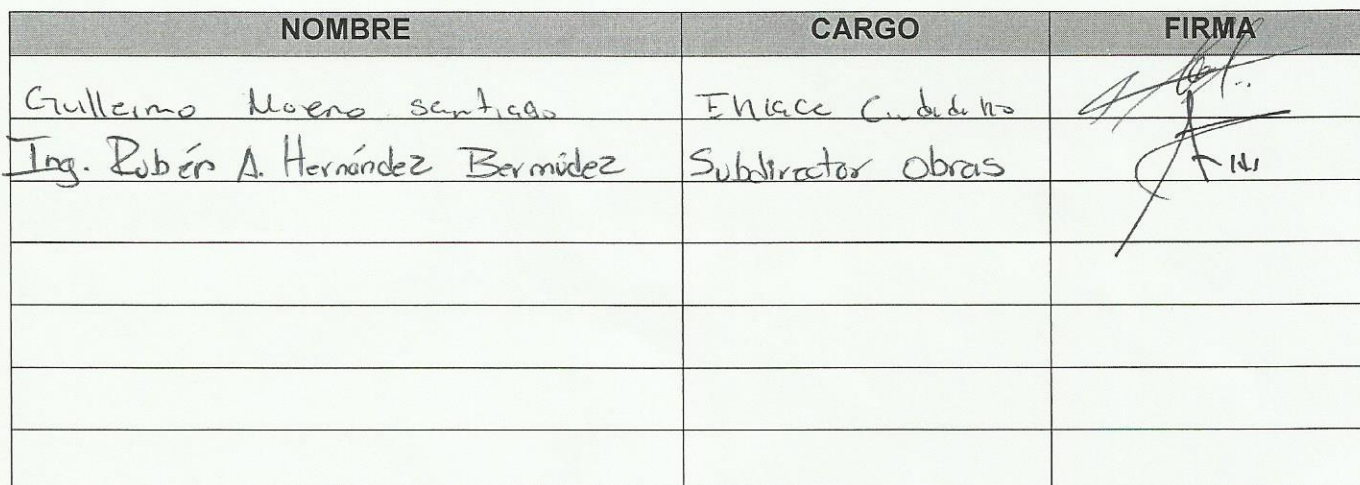 NOMBRE CARGO FIRMA
Guillermo Moreno santiago Enlace Ciudadano
Ing. Rubén A. Hernández Bermúdez Subdirector Obras